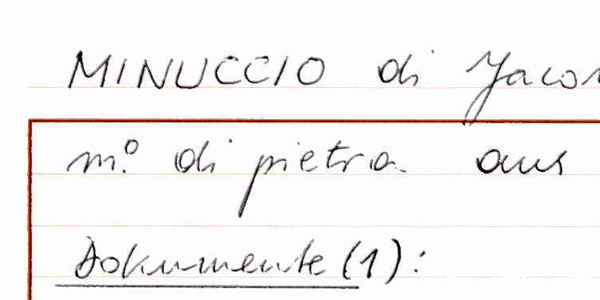 MINUCCIO di Jaco
m.º di pietra aus
Dokumente (1):